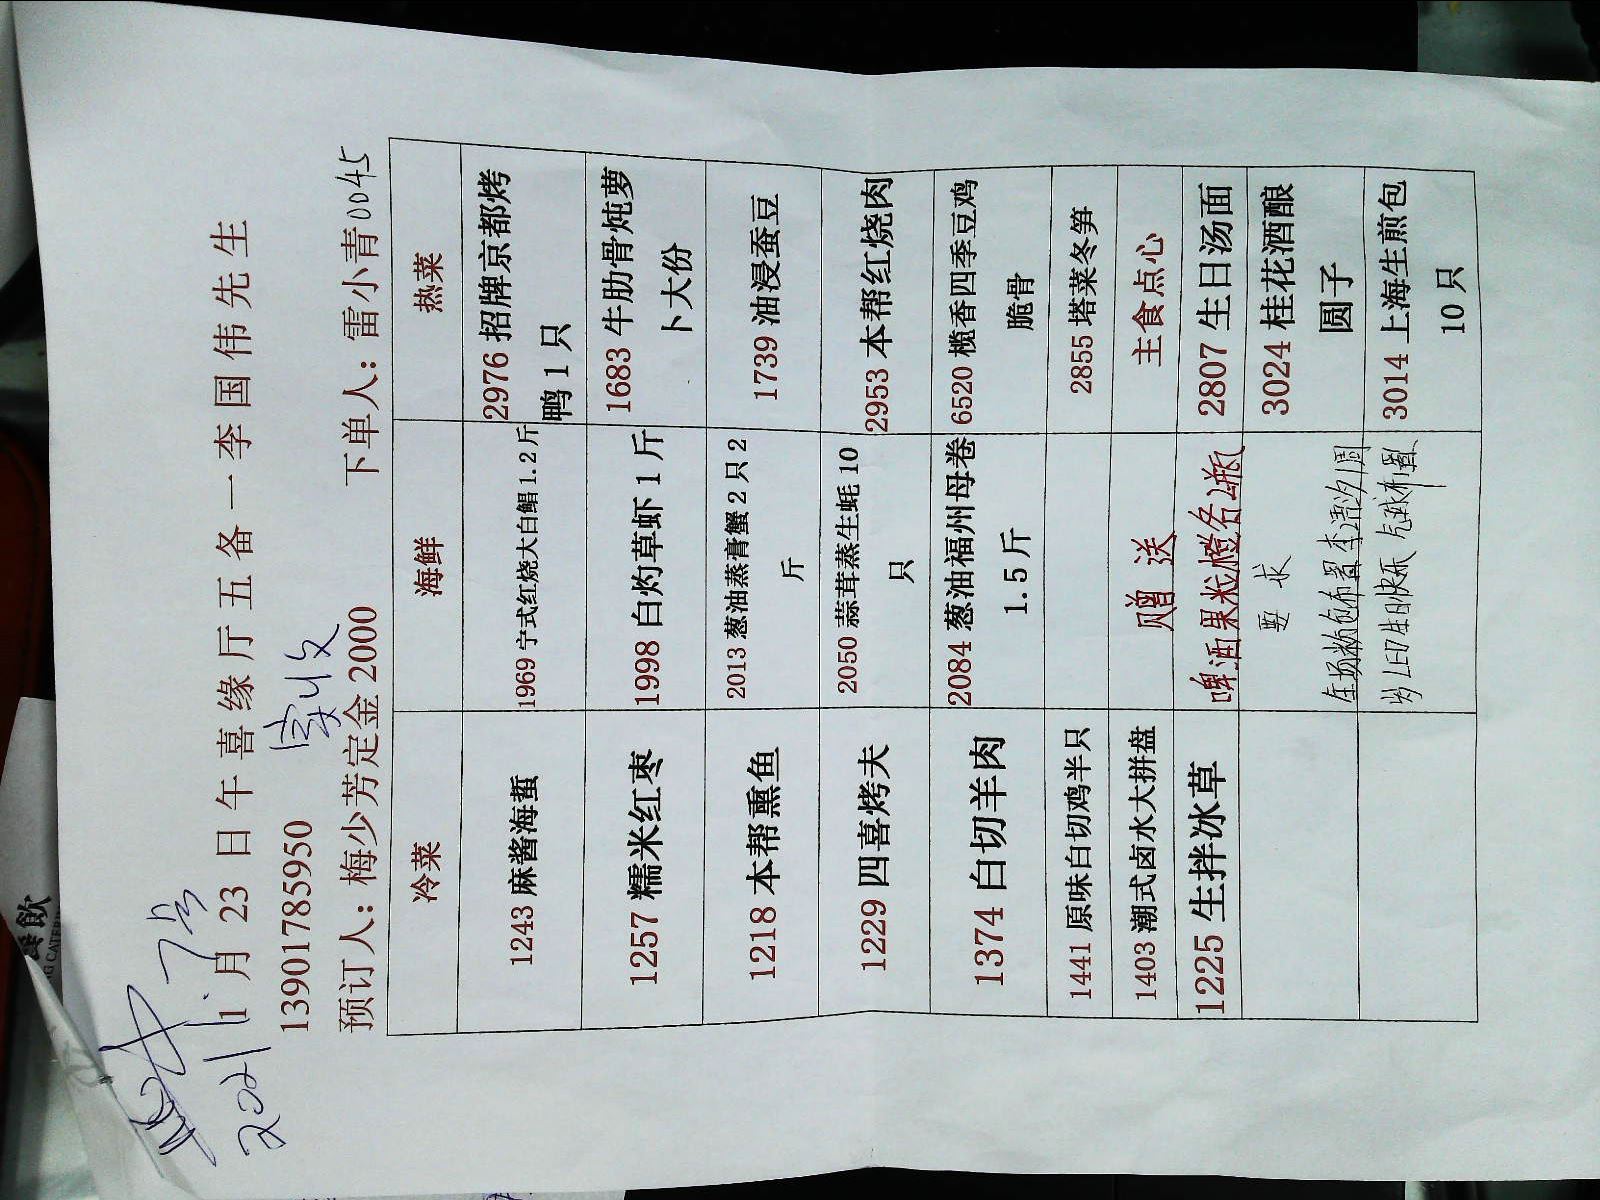 2021.
1月23日午喜缘厅五备一李国伟先生
13901785950
实收
预订人：梅少芳定金2000 下单人：雷小青0045
冷菜 海鲜 热菜
1243麻酱海蜇 1969宁式红烧大白鲳1.2斤 2976招牌京都烤
鸭1只
1257糯米红枣 1998白灼草虾1斤 1683牛肋骨炖萝
卜大份
1218本帮熏鱼 2013葱油蒸膏蟹2只2 1739油浸蚕豆
斤
1229四喜烤夫 2050蒜茸蒸生蚝10 2953本帮红烧肉
只
1374白切羊肉 2084葱油福州母卷 6520榄香四季豆鸡
1.5斤 脆骨
1441原味白切鸡半只 2855塔菜冬笋
1403潮式卤水大拼盘 赠送 主食点心
1225生拌冰草 啤酒果粒橙各2瓶 2807生日汤面
要求 3024桂花酒酿
圆子
李清汐周 3014上海生煎包
岁 生日快乐 气球布置 10只
餐飲